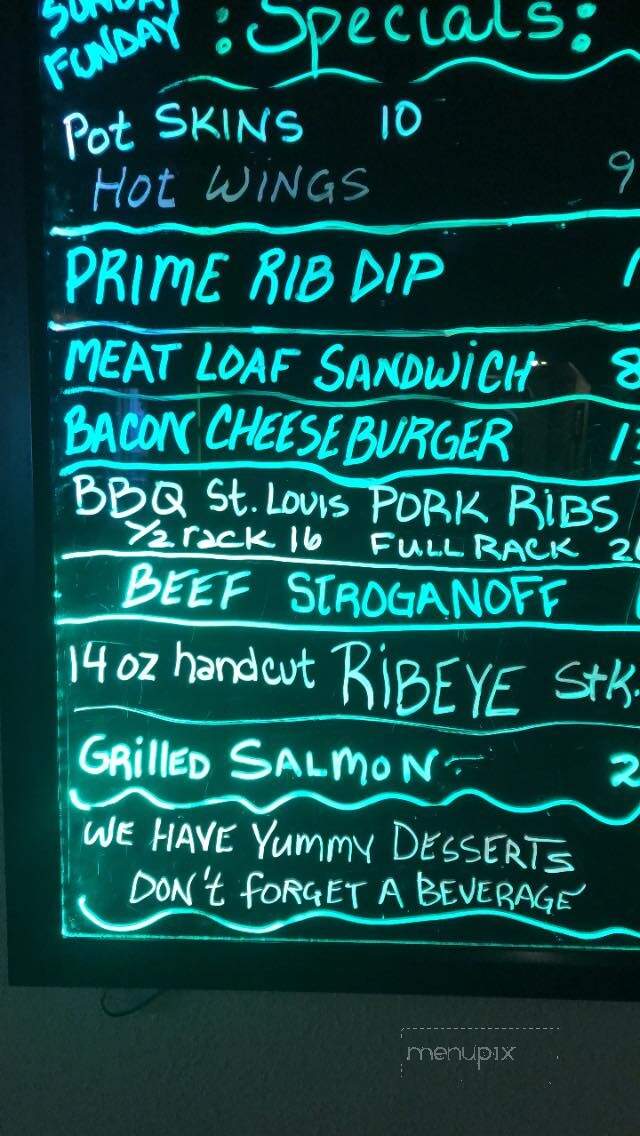 SUNDAY
FUNDAY : Specials:
Pot SKINS 10
Hot WINGS 9
PRIME RIB DIP 1
MEAT LOAF SANDWICH 8
BACON CHEESEBURGER 13
BBQ St. Louis PORK RiBS
1/2 rack 16 FULL RACK 2
BEEF STROGANOFF
14 oz handcut RiBEYE StK.
GRillED SALMON- 2
WE HAVE Yummy DESSERTS
DON't FORGET A BEVERAGE
menupix